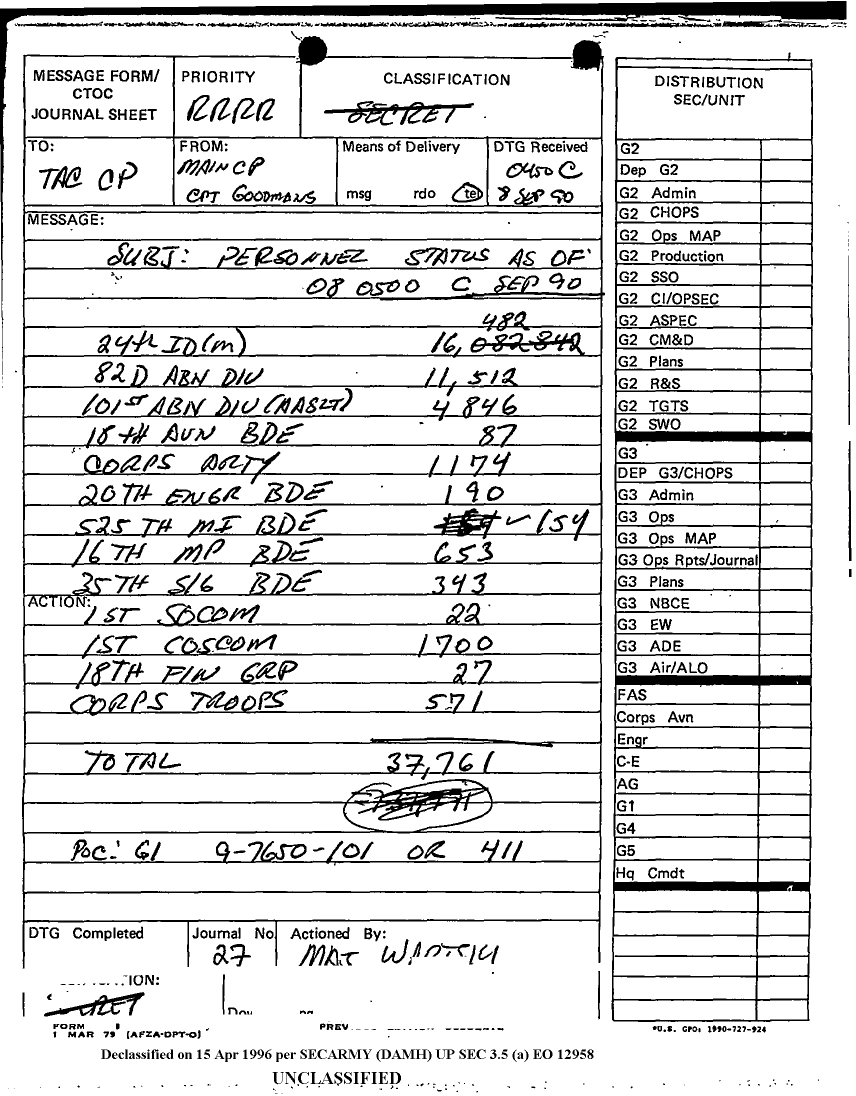 MESSAGE FORM/
CTOC
JOURNAL SHEET
PRIORITY
RRRR
CLASSIFICATION
SECRET
TO:
TAC CP
FROM:
MAIN CP
CPT GOODMANS
Means of Delivery
msg rdo tel
DTG Received
0450 C
8 SEP 90
MESSAGE:
SUBJ: PERSONNEL STATUS AS OF:
08 0500 C SEP 90
482
24th ID(M) 16,
82D ABN DIV 11,512
101ST ABN DIV (AASLT) 4846
18TH AVN BDE 87
CORPS ARTY 1174
20TH ENGR BDE 190
525 TH MI BDE 154
16TH MP BDE 653
35TH SIG BDE 343
ACTION:
1ST SOCOM 22
1ST COSCOM 1700
18TH FIN GRP 27
CORPS TROOPS 571
TOTAL 37,761
POC: G1 9-7650-101 OR 411
DTG Completed
Journal No.
27
Actioned By:
MAT
FORM
1 MAR 79 (AFZA-DPT-O)
PREV
DISTRIBUTION
SEC/UNIT
G2
Dep G2
G2 Admin
G2 CHOPS
G2 Ops MAP
G2 Production
G2 SSO
G2 CI/OPSEC
G2 ASPEC
G2 CM&D
G2 Plans
G2 R&S
G2 TGTS
G2 SWO
G3
DEP G3/CHOPS
G3 Admin
G3 Ops
G3 Ops MAP
G3 Ops Rpts/Journal
G3 Plans
G3 NBCE
G3 EW
G3 ADE
G3 Air/ALO
FAS
Corps Avn
Engr
C-E
AG
G1
G4
G5
Hq Cmdt
*U.S. GPO: 1990-727-924
Declassified on 15 Apr 1996 per SECARMY (DAMH) UP SEC 3.5 (a) EO 12958
UNCLASSIFIED